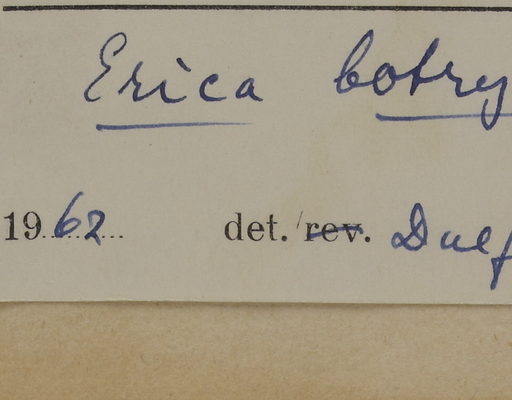 Erica botry
1962 det. rev. Dulf